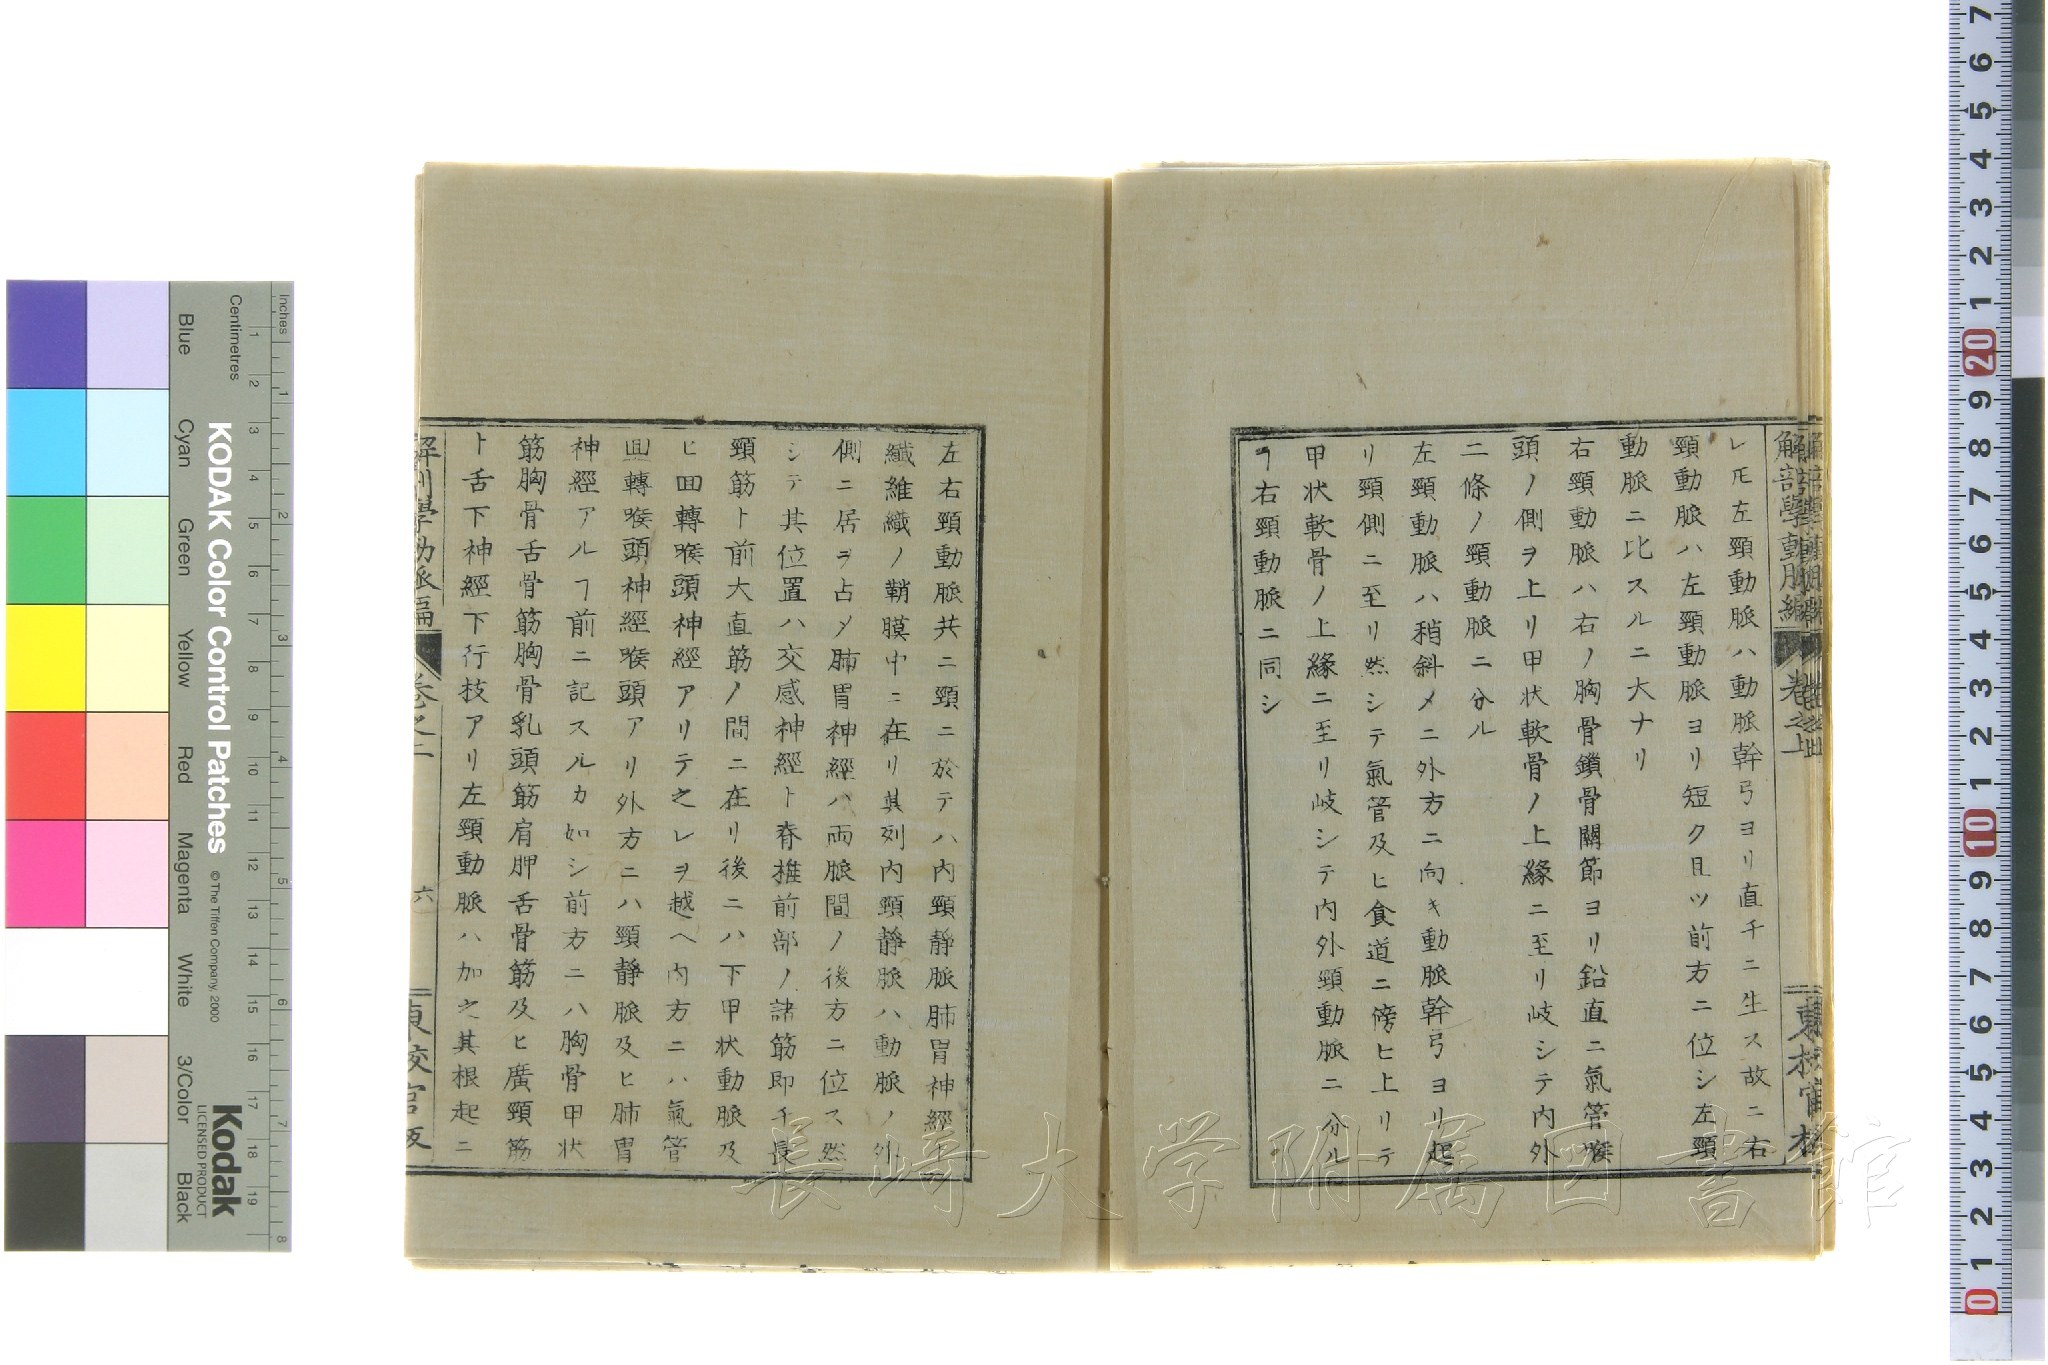 レ𪜈左頸動脈ハ動脈幹弓ヨリ直チニ生ス故ニ右
頸動脈ハ左頸動脈ヨリ短ク且ツ前方ニ位シ左頸
動脈ニ比スルニ大ナリ
右頸動脈ハ右ノ胸骨鎖骨關節ヨリ鉛直ニ氣管喉
頭ノ側ヲ上リ甲状軟骨ノ上緣ニ至リ岐シテ内外
二條ノ頸動脈ニ分ル
左頸動脈ハ稍斜メニ外方ニ向キ動脈幹弓ヨリ起
リ頸側ニ至リ然シテ氣管及ヒ食道ニ傍ヒ上リテ
甲状軟骨ノ上緣ニ至リ岐シテ内外頸動脈ニ分ル
ヿ右頸動脈ニ同シ
左右頸動脈共ニ頸ニ於テハ内頸靜脈肺胃神經ト
纖維織ノ鞘膜中ニ在リ其列内頸靜脈ハ動脈ノ外
側ニ居ヲ占メ肺胃神經ハ両脈間ノ後方ニ位ス然
シテ其位置ハ交感神經ト脊椎前部ノ諸筋即チ長
頸筋ト前大直筋ノ間ニ在リ後ニハ下甲状動脈及
ヒ回轉喉頭神經アリテ之レヲ越ヘ内方ニハ氣管
回轉喉頭神經喉頭アリ外方ニハ頸靜脈及ヒ肺胃
神經アルヿ前ニ記スルカ如シ前方ニハ胸骨甲状
筋胸骨舌骨筋胸骨乳頭筋肩胛舌骨筋及ヒ廣頸筋
ト舌下神經下行技アリ左頸動脈ハ加之其根起ニ
解剖學動脈編 卷之二 六 東校官版
長崎大学附属図書館
KODAK Color Control Patches
© The Tiffen Company, 2000
Kodak
LICENSED PRODUCT
Inches
Centimetres
Blue Cyan Green Yellow Red Magenta White 3/Color Black